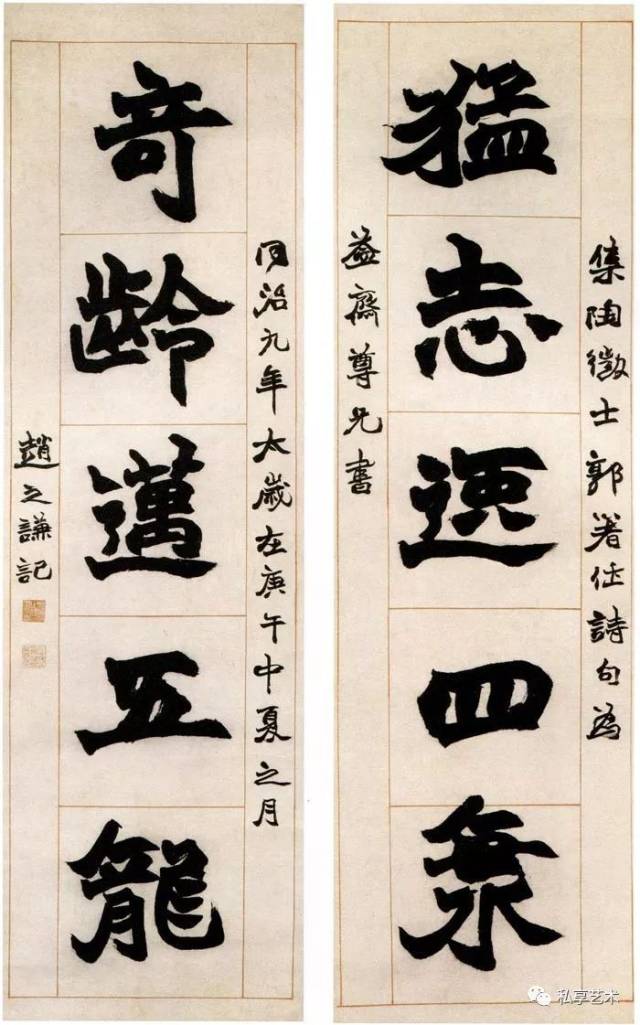 集陶徵士郭著作詩句為
猛志逸四海
益齋尊兄書
同治九年太歲在庚午中夏之月
奇齡邁五龍
趙之謙記
私享艺术